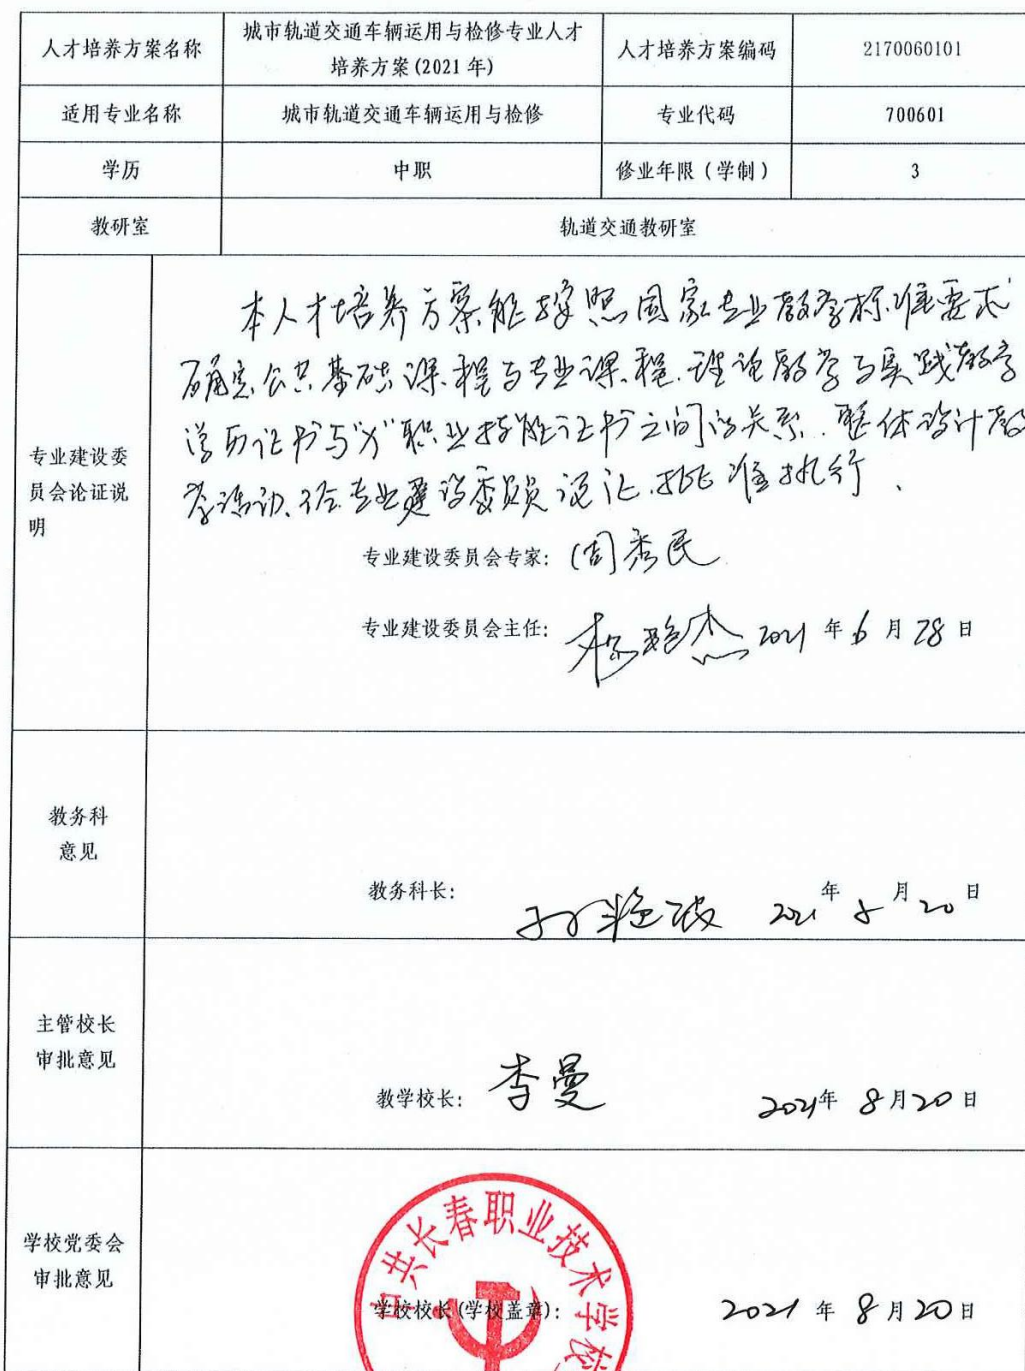 人才培养方案名称 城市轨道交通车辆运用与检修专业人才培养方案(2021年) 人才培养方案编码 2170060101
适用专业名称 城市轨道交通车辆运用与检修 专业代码 700601
学历 中职 修业年限（学制） 3
教研室 轨道交通教研室
专业建设委员会论证说明
本人才培养方案能按照国家专业教学标准要求
确定公共基础课程与专业课程、理论教学与实践教学
学历证书与"X"职业技能证书之间的关系、整体设计教
学活动、经专业建设委员论证、批准执行、
专业建设委员会专家: 周秀民
专业建设委员会主任: 2021 年 6 月 28 日
教务科
意见
教务科长: 2021 年 月 20 日
主管校长
审批意见
教学校长: 李曼 2021年 8月20日
学校党委会
审批意见
中共长春职业技术学校
学校校长(学校盖章): 2021 年 8月20日